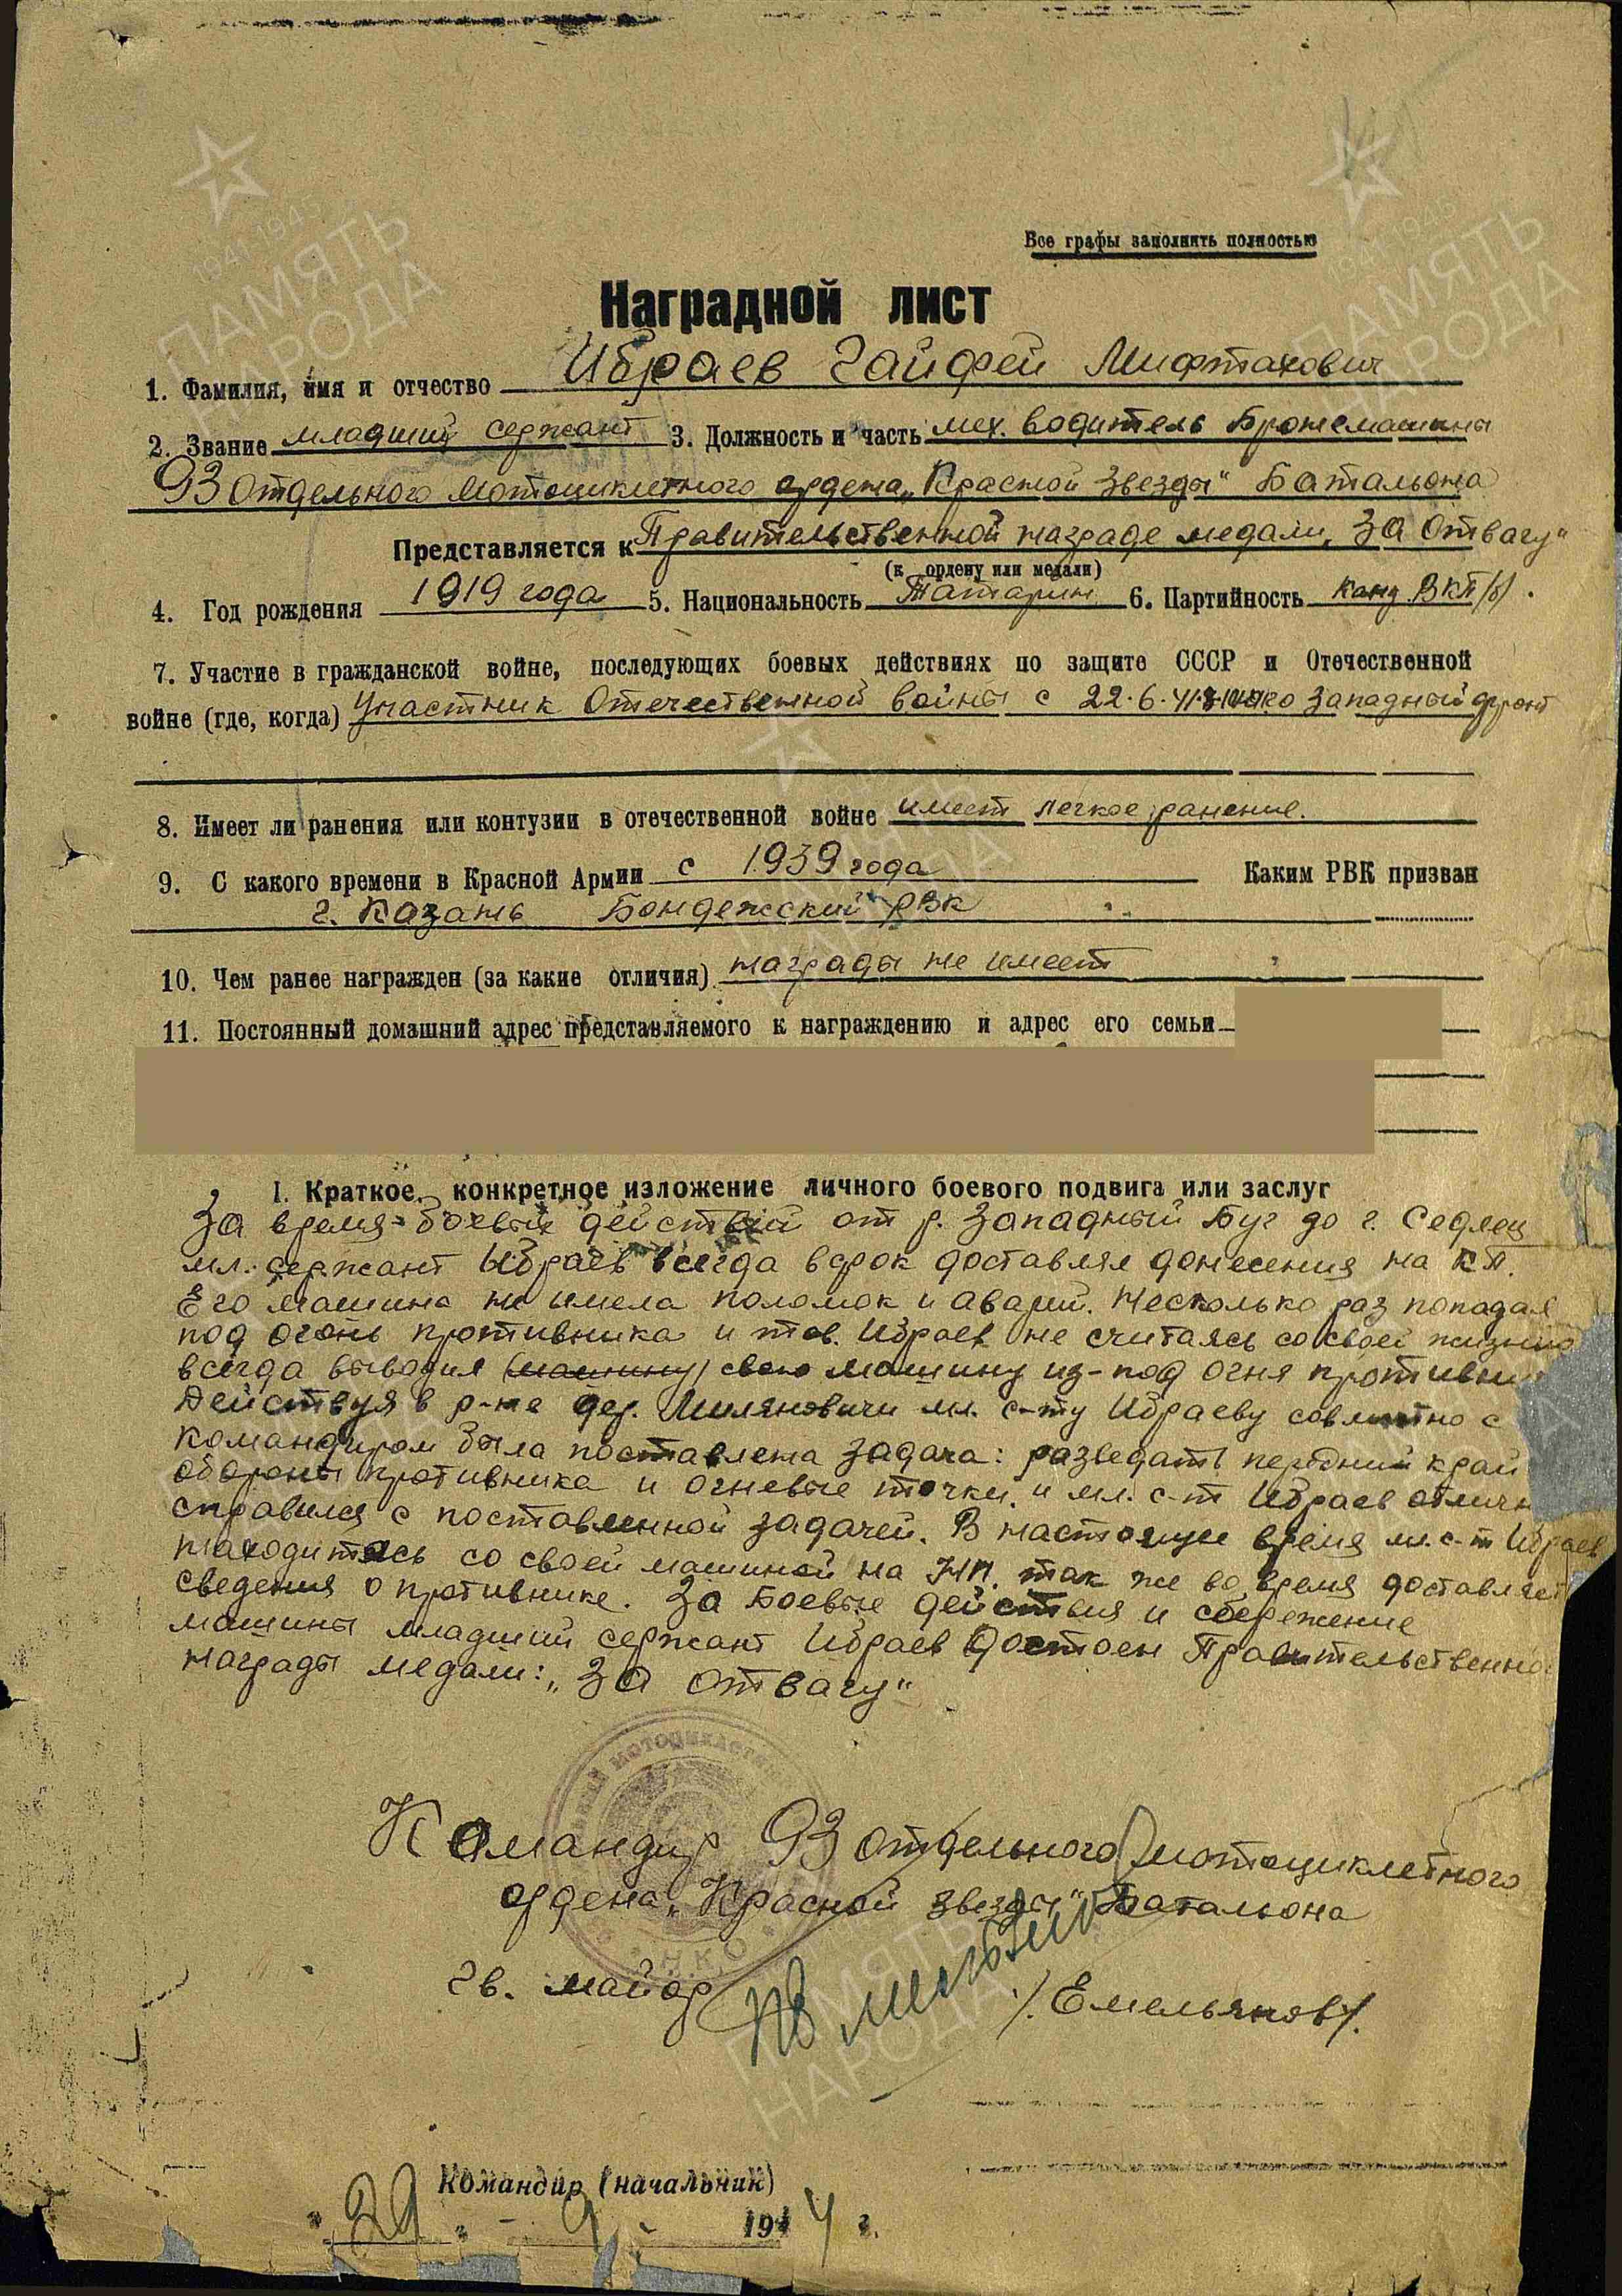 Все графы заполнить полностью
Наградной лист
1. Фамилия, имя и отчество Ибраев Гайфей Мифтахович
2. Звание младший сержант 3. Должность и часть мех. водитель Бронемашины
93 Отдельного Мотоциклетного ордена „Красной Звезды" Батальона
Представляется к Правительственной награде медали „За Отвагу"
(к ордену или медали)
4. Год рождения 1919 года 5. Национальность Татарин 6. Партийность канд. ВКП/б/.
7. Участие в гражданской войне, последующих боевых действиях по защите СССР и Отечественной
войне (где, когда) Участник Отечественной войны с 22.6.41 Западный фронт
8. Имеет ли ранения или контузии в отечественной войне имеет легкое ранение.
9. С какого времени в Красной Армии с 1939 года Каким РВК призван
г. Казань Бондежский РВК
10. Чем ранее награжден (за какие отличия) награды не имеет
11. Постоянный домашний адрес представляемого к награждению и адрес его семьи
I. Краткое, конкретное изложение личного боевого подвига или заслуг
За время боевых действий от р. Западный Буг до г. Седлец
мл. сержант Ибраев всегда в срок доставлял донесения на КП.
Его машина не имела поломок и аварий. Несколько раз попадал
под огонь противника и тов. Ибраев не считаясь со своей жизнью
всегда выводил (машину) свою машину из-под огня противни
Действуя в р-не дер. Миляновичи мл. с-ту Ибраеву совместно с
командиром была поставлена задача: разведать передний край
обороны противника и огневые точки, и мл. с-т Ибраев отличн
справился с поставленной задачей. В настоящее время мл. с-т Ибраев
находитясь со своей машиной на НП. так же во время доставляет
сведения о противнике. За Боевые действия и сбережение
машины младший сержант Ибраев достоен Правительственной
награды медали: „За Отвагу"
мотоциклетный
НКО
Командир 93 отдельного мотоциклетного
ордена „Красной звезды" Батальона
гв. майор /Емельянов/.
Командир (начальник)
"29" - 9 - 1944 г.
1941-1945
ПАМЯТЬ
НАРОДА
1941-1945
ПАМЯТЬ
НАРОДА
ПАМЯТЬ
НАРОДА